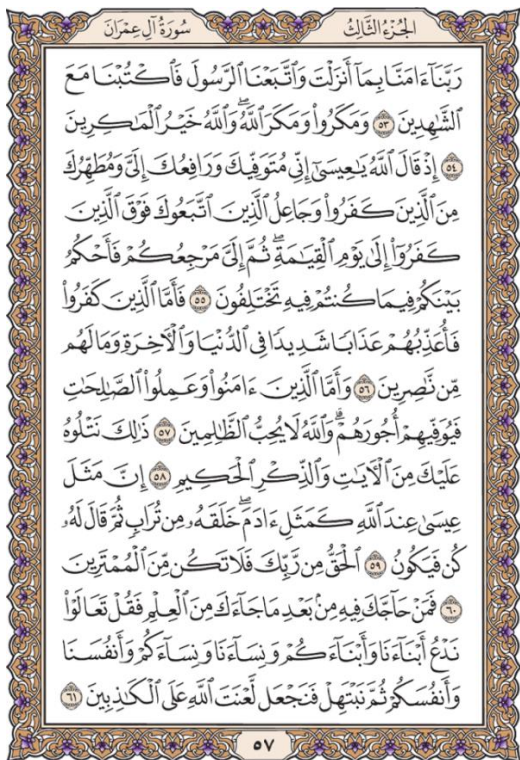 الجُزْءُ الثَّالِثُ
سُورَةُ آلِ عِمْرَانَ
رَبَّنَآ ءَامَنَّا بِمَآ أَنزَلْتَ وَٱتَّبَعْنَا ٱلرَّسُولَ فَٱكْتُبْنَا مَعَ
ٱلشَّٰهِدِينَ ٥٣ وَمَكَرُواْ وَمَكَرَ ٱللَّهُۖ وَٱللَّهُ خَيْرُ ٱلْمَٰكِرِينَ
٥٤ إِذْ قَالَ ٱللَّهُ يَٰعِيسَىٰٓ إِنِّي مُتَوَفِّيكَ وَرَافِعُكَ إِلَيَّ وَمُطَهِّرُكَ
مِنَ ٱلَّذِينَ كَفَرُواْ وَجَاعِلُ ٱلَّذِينَ ٱتَّبَعُوكَ فَوْقَ ٱلَّذِينَ
كَفَرُوٓاْ إِلَىٰ يَوْمِ ٱلْقِيَٰمَةِۖ ثُمَّ إِلَيَّ مَرْجِعُكُمْ فَأَحْكُمُ
بَيْنَكُمْ فِيمَا كُنتُمْ فِيهِ تَخْتَلِفُونَ ٥٥ فَأَمَّا ٱلَّذِينَ كَفَرُواْ
فَأُعَذِّبُهُمْ عَذَابًا شَدِيدًا فِي ٱلدُّنْيَا وَٱلْأٓخِرَةِ وَمَا لَهُم
مِّن نَّٰصِرِينَ ٥٦ وَأَمَّا ٱلَّذِينَ ءَامَنُواْ وَعَمِلُواْ ٱلصَّٰلِحَٰتِ
فَيُوَفِّيهِمْ أُجُورَهُمْۗ وَٱللَّهُ لَا يُحِبُّ ٱلظَّٰلِمِينَ ٥٧ ذَٰلِكَ نَتْلُوهُ
عَلَيْكَ مِنَ ٱلْأٓيَٰتِ وَٱلذِّكْرِ ٱلْحَكِيمِ ٥٨ إِنَّ مَثَلَ
عِيسَىٰ عِندَ ٱللَّهِ كَمَثَلِ ءَادَمَۖ خَلَقَهُۥ مِن تُرَابٍ ثُمَّ قَالَ لَهُۥ
كُن فَيَكُونُ ٥٩ ٱلْحَقُّ مِن رَّبِّكَ فَلَا تَكُن مِّنَ ٱلْمُمْتَرِينَ
٦٠ فَمَنْ حَآجَّكَ فِيهِ مِنۢ بَعْدِ مَا جَآءَكَ مِنَ ٱلْعِلْمِ فَقُلْ تَعَالَوْاْ
نَدْعُ أَبْنَآءَنَا وَأَبْنَآءَكُمْ وَنِسَآءَنَا وَنِسَآءَكُمْ وَأَنفُسَنَا
وَأَنفُسَكُمْ ثُمَّ نَبْتَهِلْ فَنَجْعَل لَّعْنَتَ ٱللَّهِ عَلَى ٱلْكَٰذِبِينَ ٦١
٥٧